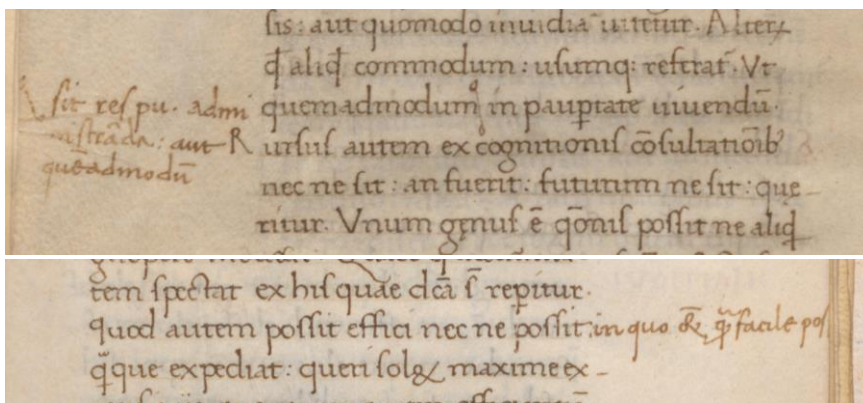 sis: aut quomodo inuidia uitetur. Alterꝝ
qđ aliqđ commodum: usumq: referat. Vt
sit res pu. admi
nistrāda: aut
quēadmodū
quemadmodum in paup̄tate uiuendū.
Rursus autem ex cognitionis cōsultatiōib'
nec ne sit: an fuerit: futurum ne sit: que-
ritur. Vnum genus ē qōnis possit ne aliqđ
tem spectat ex his quae dc̄a s̄ rep̄itur.
quod autem possit effici nec ne possit: in quo & q̄ facile pos
q̄que expediat: queri solꝫ maxime ex-